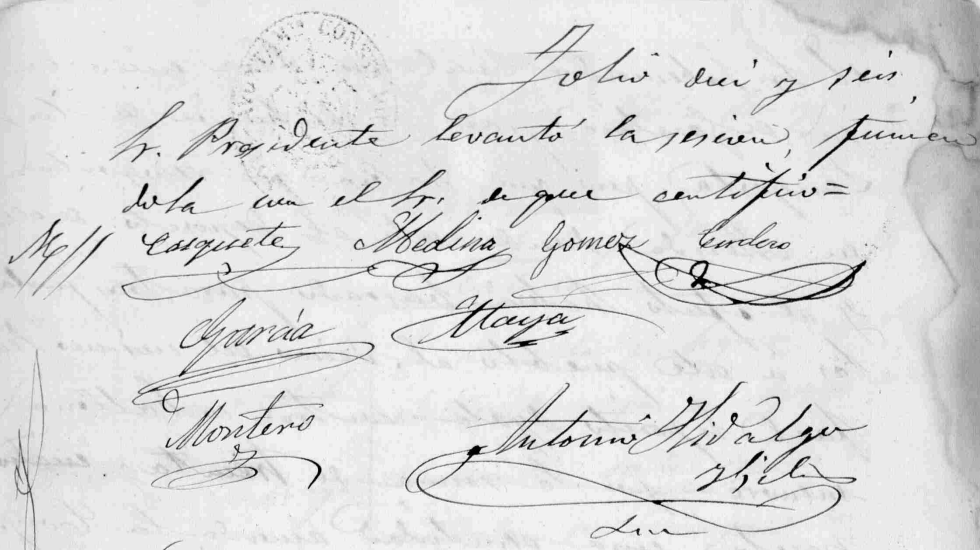 Folio diez y seis
Sr. Presidente levantó la sesion, firman
dola con el Sr. de que certifico=
Casquete Medina Gomez Cordero
Garcia Haya
Montero
Antonio Hidalgo